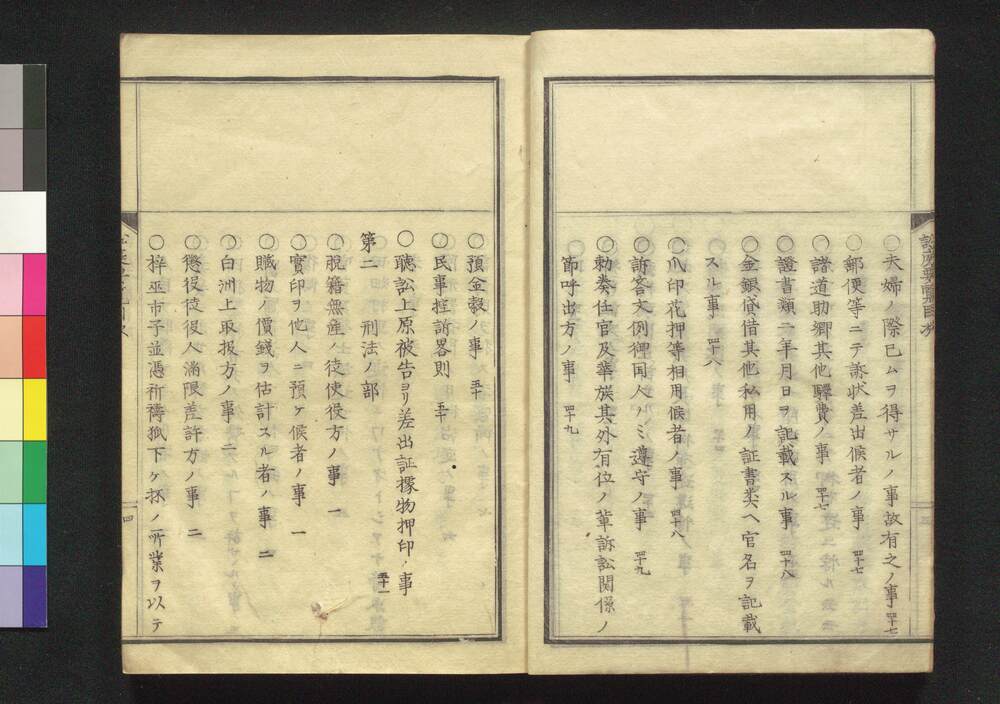 〇夫婦ノ際已ムヲ得サルノ事故有之ノ事 四十七
〇郵便等ニテ訴状差出候者ノ事 四十七
〇諸道助郷其他驛費ノ事 四十七
〇證書類ニ年月日ヲ記載スル事 四十八
〇金銀貸借其他私用ノ証書类ヘ官名ヲ記載
スル事 四十八
〇爪印花押等相用候者ノ事 四十八
〇訴答文例裡国人ノミ遵守ノ事 四十九
〇勅奏任官及華族其外有位ノ輩訴訟関係ノ
節呼出方ノ事 四十九
〇預金穀ノ事 五十
〇民事控訴畧則 五十
〇聴訟上原被告ヨリ差出証據物押印ノ事 五十一
第二 刑法ノ部
〇脱籍無産ノ徒使役方ノ事 一
〇實印ヲ他人ニ預ケ候者ノ事 一
〇贓物ノ價錢ヲ估計スル者ノ事 二
〇白洲上取扱方ノ事 二
〇懲役徒役人満限差許方ノ事 二
〇梓巫市子並憑祈禱狐下ケ抔ノ所業ヲ以テ
四